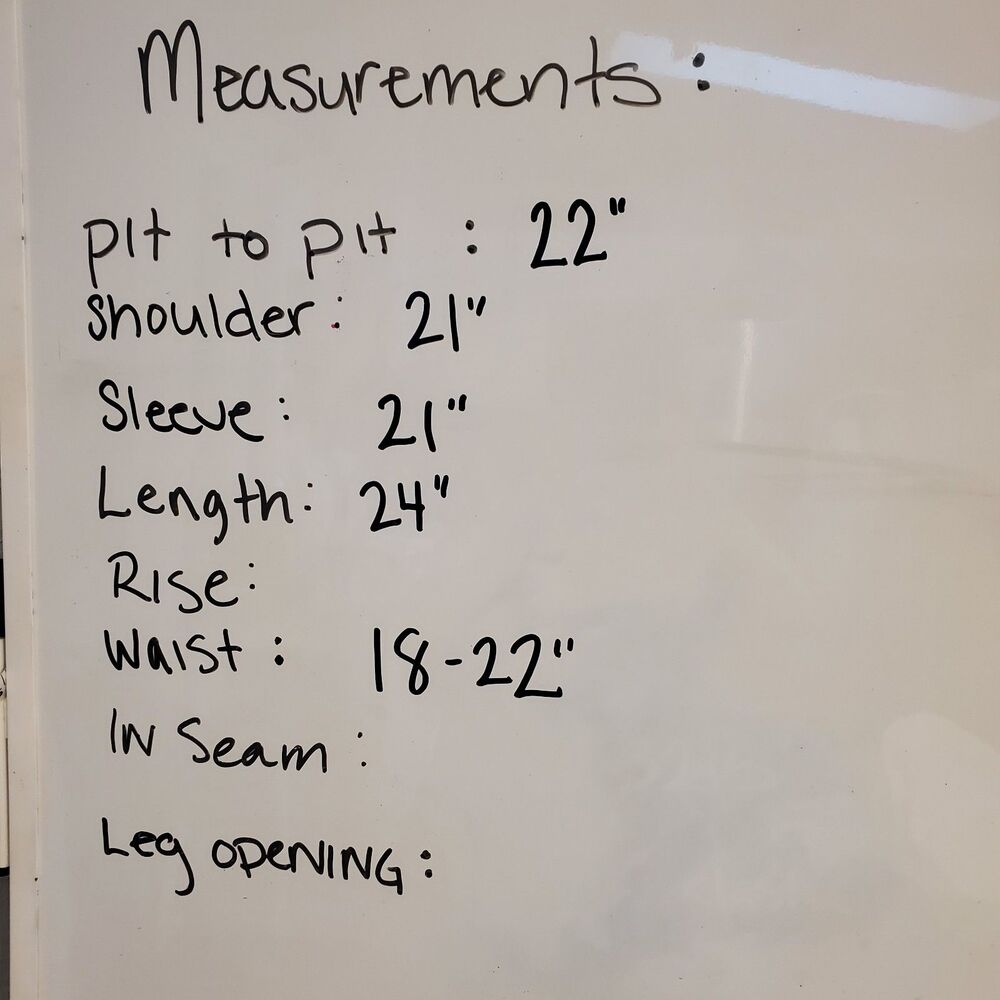 Measurements :
pit to pit : 22"
Shoulder: 21"
Sleeve: 21"
Length: 24"
Rise:
Waist : 18-22"
In Seam :
Leg opening :